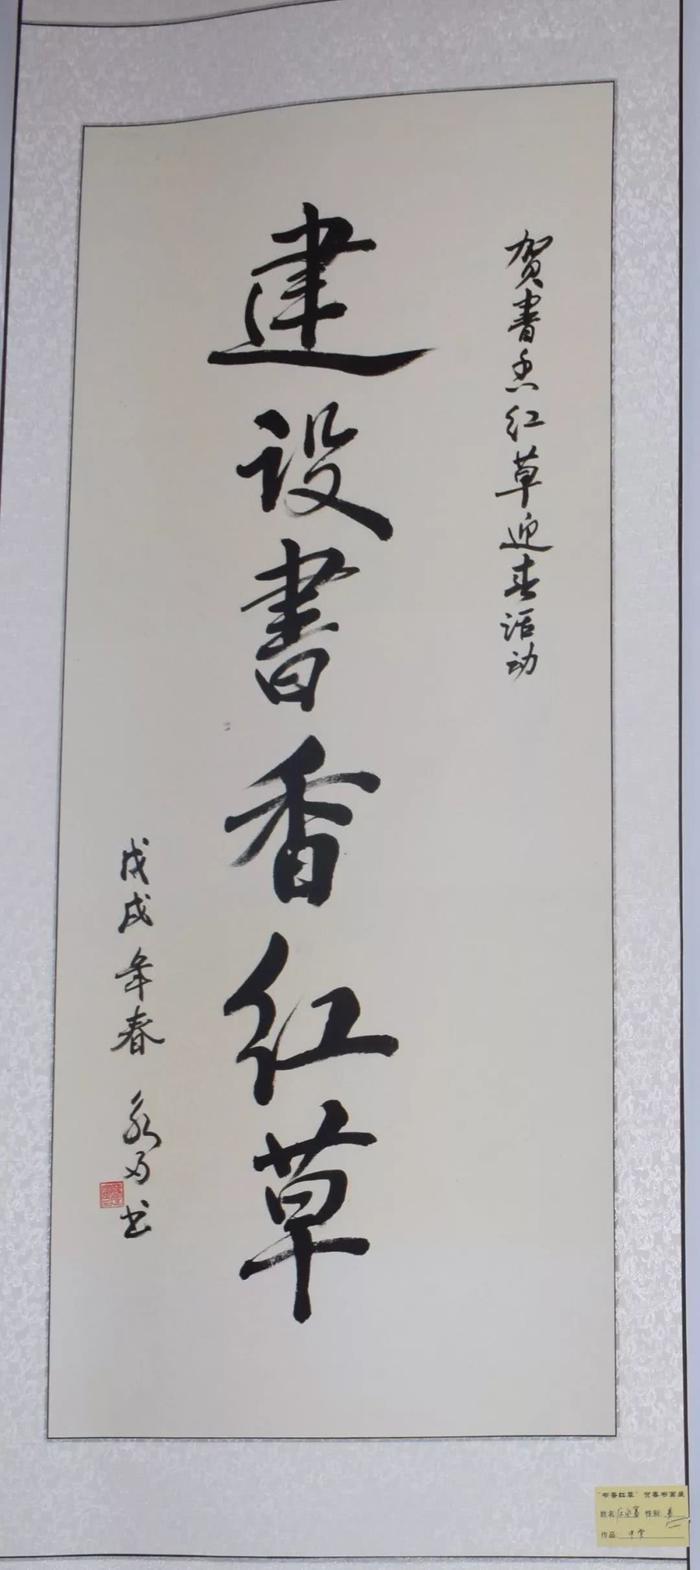 贺書香红草迎春活动
建设書香红草
戊戌年春 永为书
"书香红草"贺春书画展
姓名 性别
作品 中堂